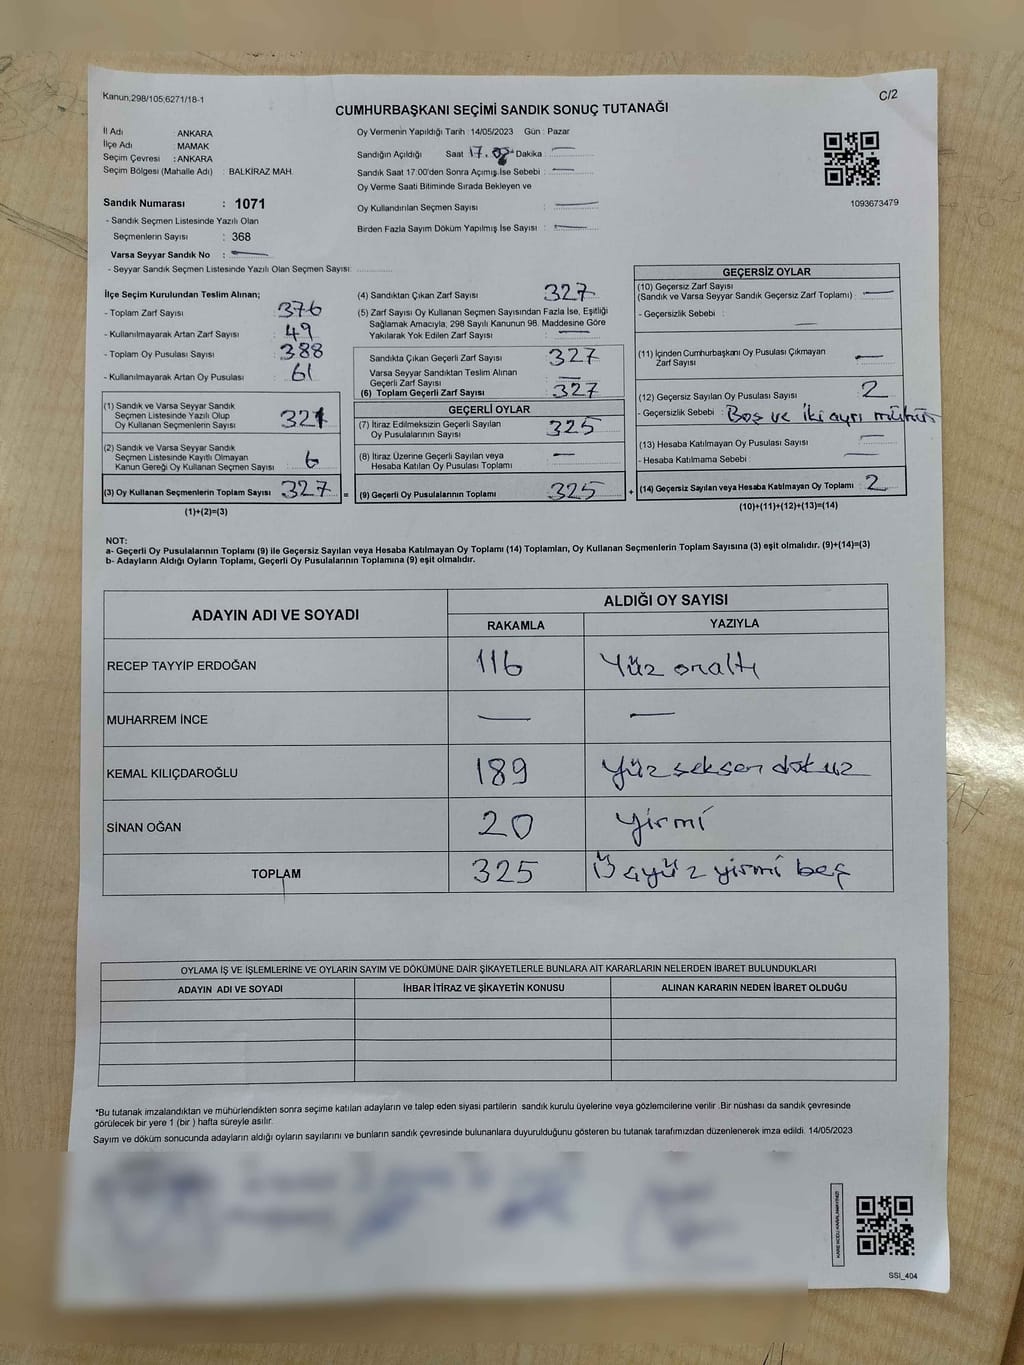 Kanun.298/105;6271/18-1
C/2
CUMHURBAŞKANI SEÇİMİ SANDIK SONUÇ TUTANAĞI
İl Adı : ANKARA
İlçe Adı : MAMAK
Seçim Çevresi : ANKARA
Seçim Bölgesi (Mahalle Adı) : BALKİRAZ MAH.
Sandık Numarası : 1071
- Sandık Seçmen Listesinde Yazılı Olan
Seçmenlerin Sayısı : 368
Varsa Seyyar Sandık No : —
- Seyyar Sandık Seçmen Listesinde Yazılı Olan Seçmen Sayısı:
Oy Vermenin Yapıldığı Tarih : 14/05/2023 Gün : Pazar
Sandığın Açıldığı Saat 17. Dakika : —
Sandık Saat 17:00'den Sonra Açımış İse Sebebi : —
Oy Verme Saati Bitiminde Sırada Bekleyen ve
Oy Kullandırılan Seçmen Sayısı : —
Birden Fazla Sayım Döküm Yapılmış İse Sayısı : —
1093673479
İlçe Seçim Kurulundan Teslim Alınan;
- Toplam Zarf Sayısı : 376
- Kullanılmayarak Artan Zarf Sayısı : 49
- Toplam Oy Pusulası Sayısı : 388
- Kullanılmayarak Artan Oy Pusulası : 61
(1) Sandık ve Varsa Seyyar Sandık
Seçmen Listesinde Yazılı Olup
Oy Kullanan Seçmenlerin Sayısı : 321
(2) Sandık ve Varsa Seyyar Sandık
Seçmen Listesinde Kayıtlı Olmayan
Kanun Gereği Oy Kullanan Seçmen Sayısı : 6
(3) Oy Kullanan Seçmenlerin Toplam Sayısı : 327 =
(1)+(2)=(3)
(4) Sandıktan Çıkan Zarf Sayısı : 327
(5) Zarf Sayısı Oy Kullanan Seçmen Sayısından Fazla İse, Eşitliği
Sağlamak Amacıyla, 298 Sayılı Kanunun 98. Maddesine Göre
Yakılarak Yok Edilen Zarf Sayısı : —
Sandıkta Çıkan Geçerli Zarf Sayısı : 327
Varsa Seyyar Sandıktan Teslim Alınan
Geçerli Zarf Sayısı : —
(6) Toplam Geçerli Zarf Sayısı : 327
GEÇERLİ OYLAR
(7) İtiraz Edilmeksizin Geçerli Sayılan
Oy Pusulalarının Sayısı : 325
(8) İtiraz Üzerine Geçerli Sayılan veya
Hesaba Katılan Oy Pusulası Toplamı : —
(9) Geçerli Oy Pusulalarının Toplamı : 325 +
GEÇERSİZ OYLAR
(10) Geçersiz Zarf Sayısı
(Sandık ve Varsa Seyyar Sandık Geçersiz Zarf Toplamı) : —
- Geçersizlik Sebebi : —
(11) İçinden Cumhurbaşkanı Oy Pusulası Çıkmayan
Zarf Sayısı : —
(12) Geçersiz Sayılan Oy Pusulası Sayısı : 2
- Geçersizlik Sebebi : Boş ve iki ayrı mühür
(13) Hesaba Katılmayan Oy Pusulası Sayısı : —
- Hesaba Katılmama Sebebi : —
(14) Geçersiz Sayılan veya Hesaba Katılmayan Oy Toplamı : 2
(10)+(11)+(12)+(13)=(14)
NOT:
a- Geçerli Oy Pusulalarının Toplamı (9) ile Geçersiz Sayılan veya Hesaba Katılmayan Oy Toplamı (14) Toplamları, Oy Kullanan Seçmenlerin Toplam Sayısına (3) eşit olmalıdır. (9)+(14)=(3)
b- Adayların Aldığı Oyların Toplamı, Geçerli Oy Pusulalarının Toplamına (9) eşit olmalıdır.
ADAYIN ADI VE SOYADI
ALDIĞI OY SAYISI
RAKAMLA YAZIYLA
RECEP TAYYİP ERDOĞAN 116 Yüz onaltı
MUHARREM İNCE — —
KEMAL KILIÇDAROĞLU 189 yüz seksen dokuz
SİNAN OĞAN 20 yirmi
TOPLAM 325 Üçyüz yirmi beş
OYLAMA İŞ VE İŞLEMLERİNE VE OYLARIN SAYIM VE DÖKÜMÜNE DAİR ŞİKAYETLERLE BUNLARA AİT KARARLARIN NELERDEN İBARET BULUNDUKLARI
ADAYIN ADI VE SOYADI İHBAR İTİRAZ VE ŞİKAYETİN KONUSU ALINAN KARARIN NEDEN İBARET OLDUĞU
*Bu tutanak imzalandıktan ve mühürlendikten sonra seçime katılan adayların ve talep eden siyasi partilerin sandık kurulu üyelerine veya gözlemcilerine verilir .Bir nüshası da sandık çevresinde
görülecek bir yere 1 (bir ) hafta süreyle asılır.
Sayım ve döküm sonucunda adayların aldığı oyların sayılarını ve bunların sandık çevresinde bulunanlara duyurulduğunu gösteren bu tutanak tarafımızdan düzenlenerek imza edildi. 14/05/2023
SSI_404